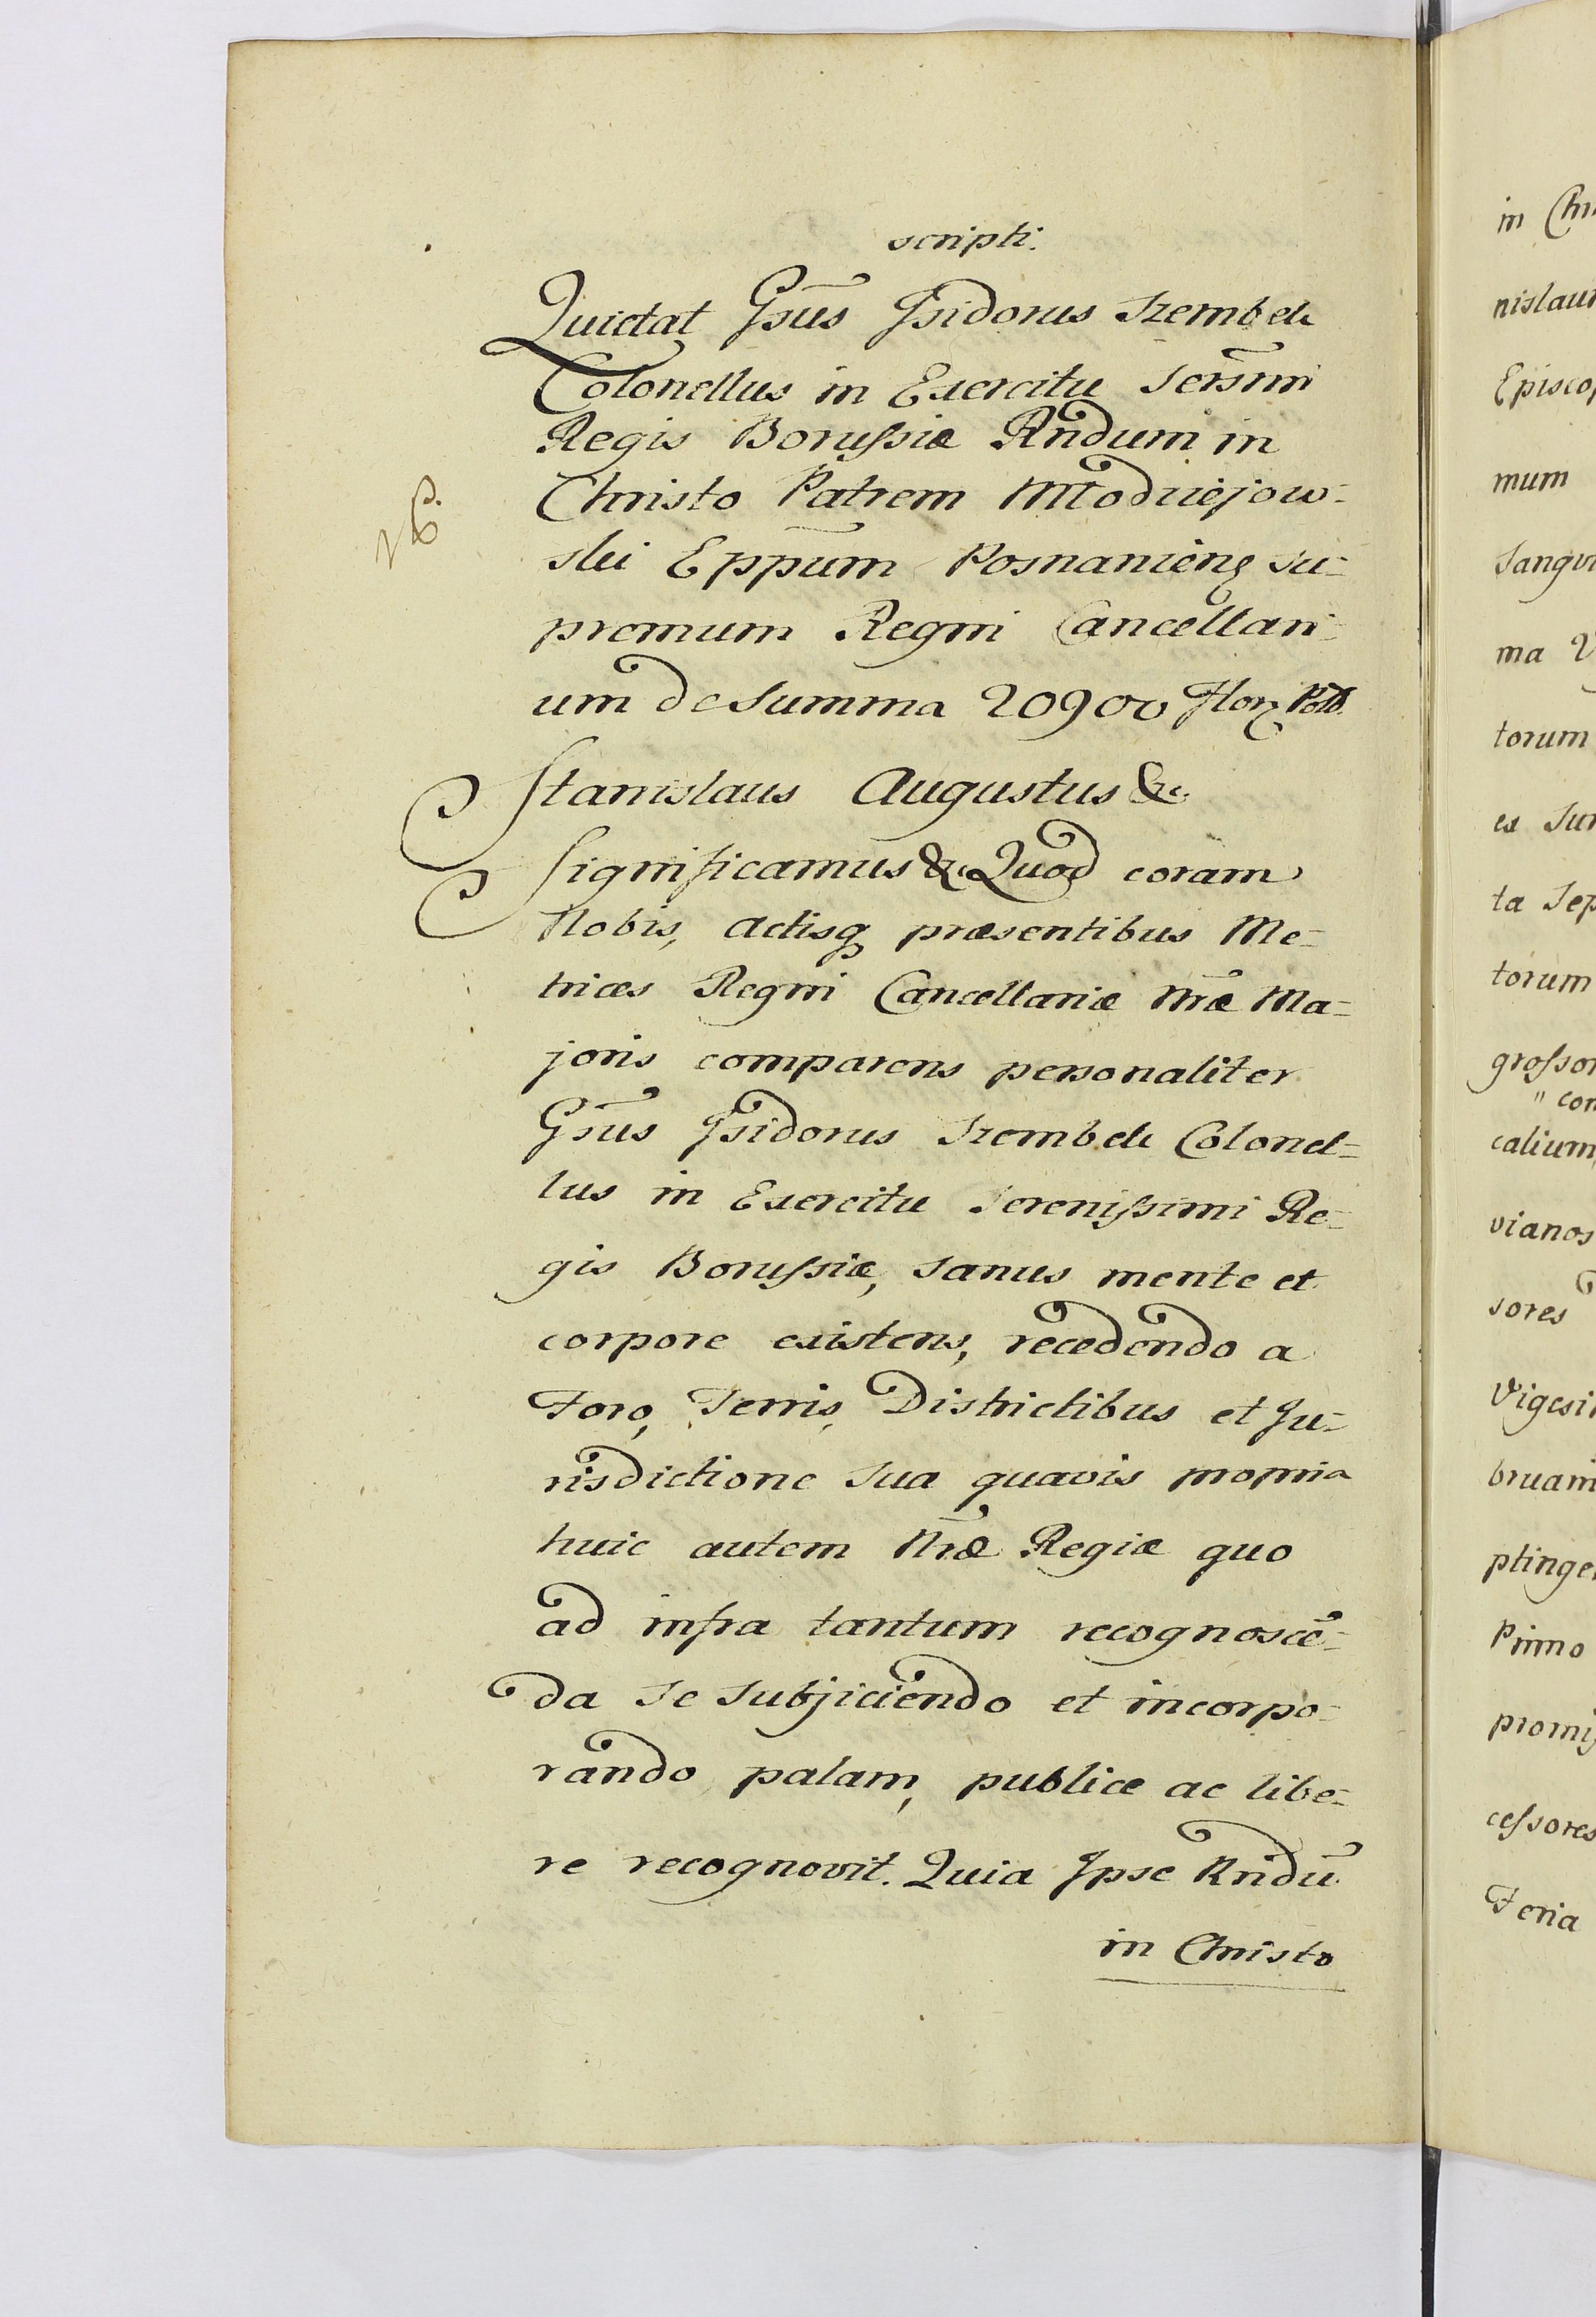 scripti.
Quietat Gsūs Isidorus Szembek
Colonellus in Exercitu Serssmi
Regis Borussiæ Rndum in
Christo Patrem Młodziejow=
ski Eppūm Posnanieng Su=
premum Regni Cancellari=
um de Summa 20900 Flor. Pol.
Stanislaus Augustus &c
Significamus &c Quod coram
Nobis, Actisq præsentibus Me=
trices Regni Cancellariæ Nrāe Ma=
joris comparens personaliter
Gsūs Isidorus Szembek Colonel=
lus in Exercitu Serenissimi Re=
gis Borussiæ, Sanus mente et
corpore existens, recedendo a
Foro, Terris, Districtibus et Ju=
risdictione Sua quavis propria
huic autem Nrāe Regiæ quo
ad infra tantum recognoscē=
da Se Subjiciendo et incorpo=
rando palam, publice ac libe=
re recognovit. Quia Ipse Rndū
in Christo
in Chri
nislau
Episcop
mum
Sangvi
ma V
torum
ex Sum
ta Sep
torum
grossor
" con
calium,
vianos
sores
Vigesi
bruarii
ptinge
Primo
promis
cessores
Feria